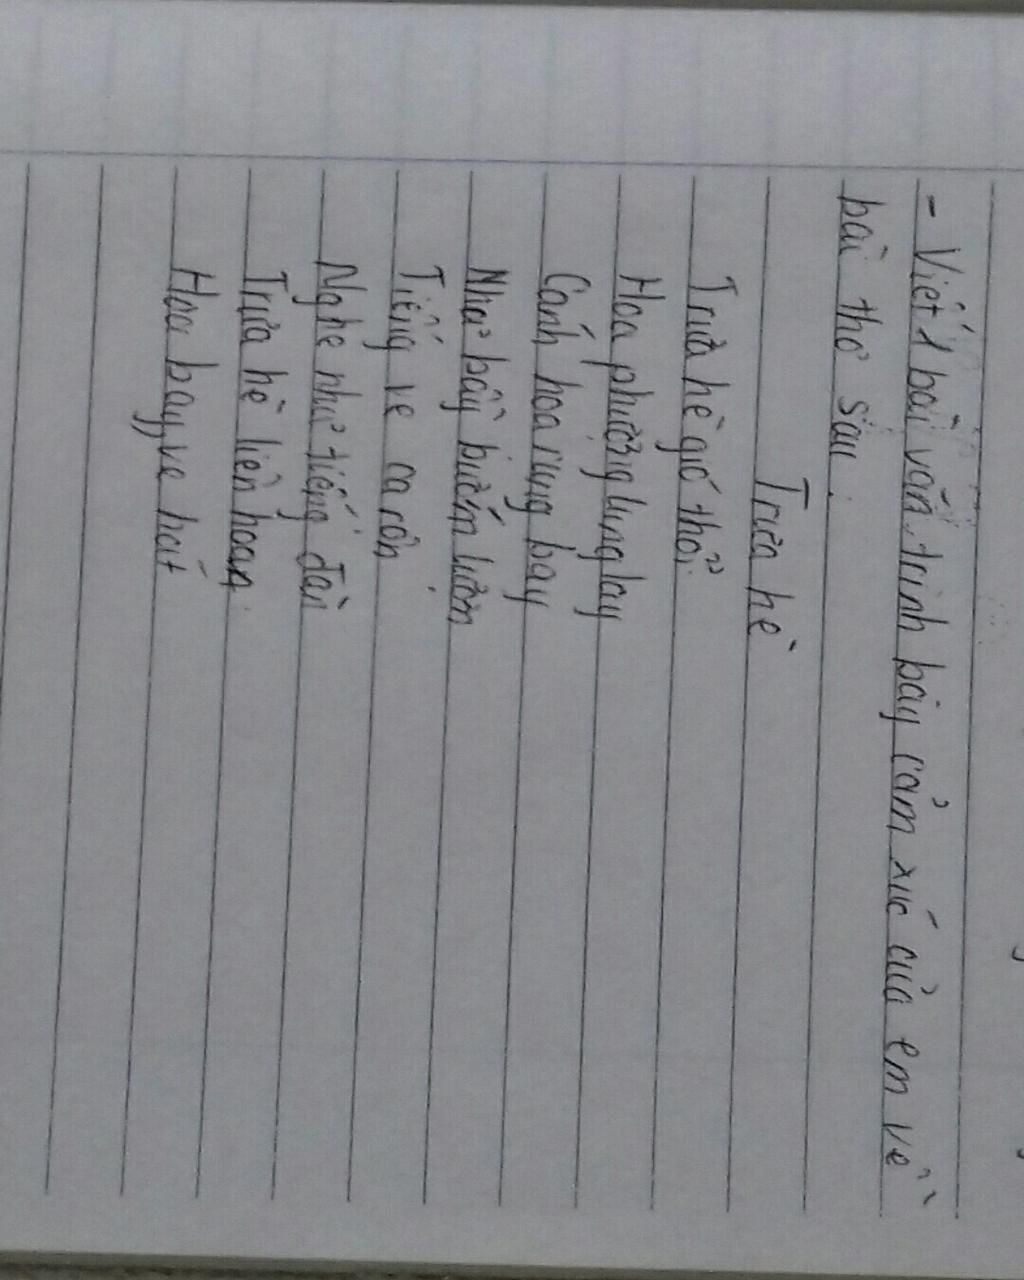 - Viết 1 bài văn trình bày cảm xúc của em về
bài thơ sau.
Trưa hè
Trưa hè gió thổi
Hoa phượng lung lay
Cánh hoa rung bay
Như bầy bướm lượn
Tiếng ve ca rộn
Nghe như tiếng đàn
Trưa hè liên hoan
Hoa bay, ve hát